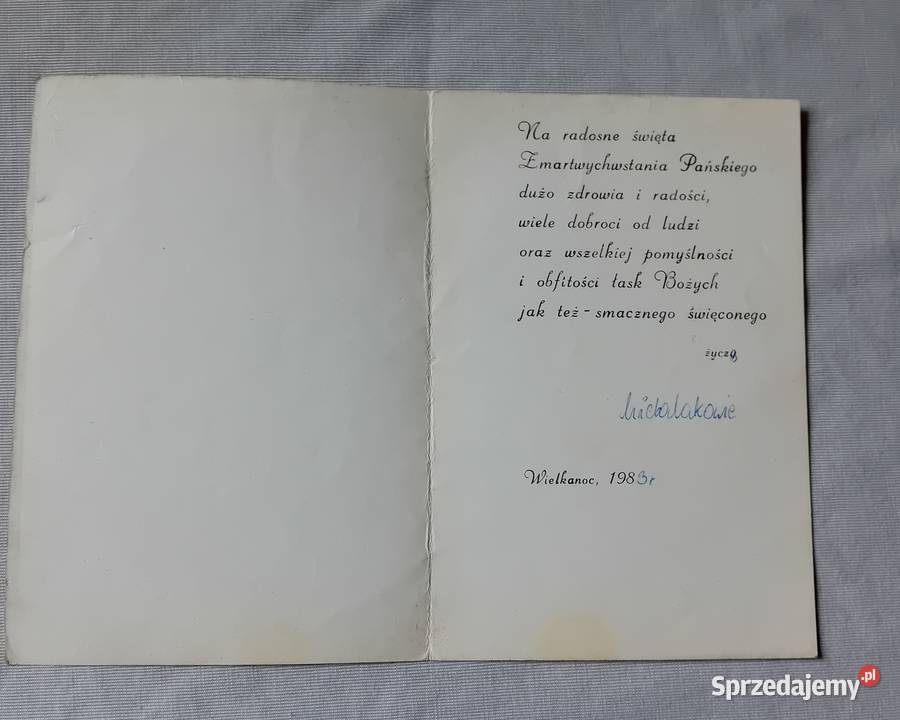 Na radosne święta
Zmartwychwstania Pańskiego
dużo zdrowia i radości,
wiele dobroci od ludzi
oraz wszelkiej pomyślności
i obfitości łask Bożych
jak też - smacznego święconego
życzą
Michalakowie
Wielkanoc, 1983r
Sprzedajemy.pl